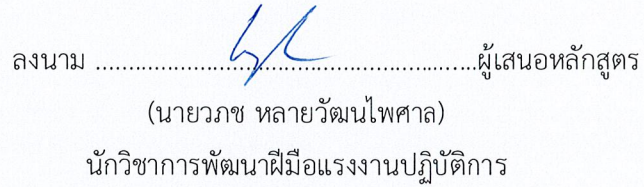 ลงนาม ........................................................ผู้เสนอหลักสูตร
(นายวภช หลายวัฒนไพศาล)
นักวิชาการพัฒนาฝีมือแรงงานปฏิบัติการ